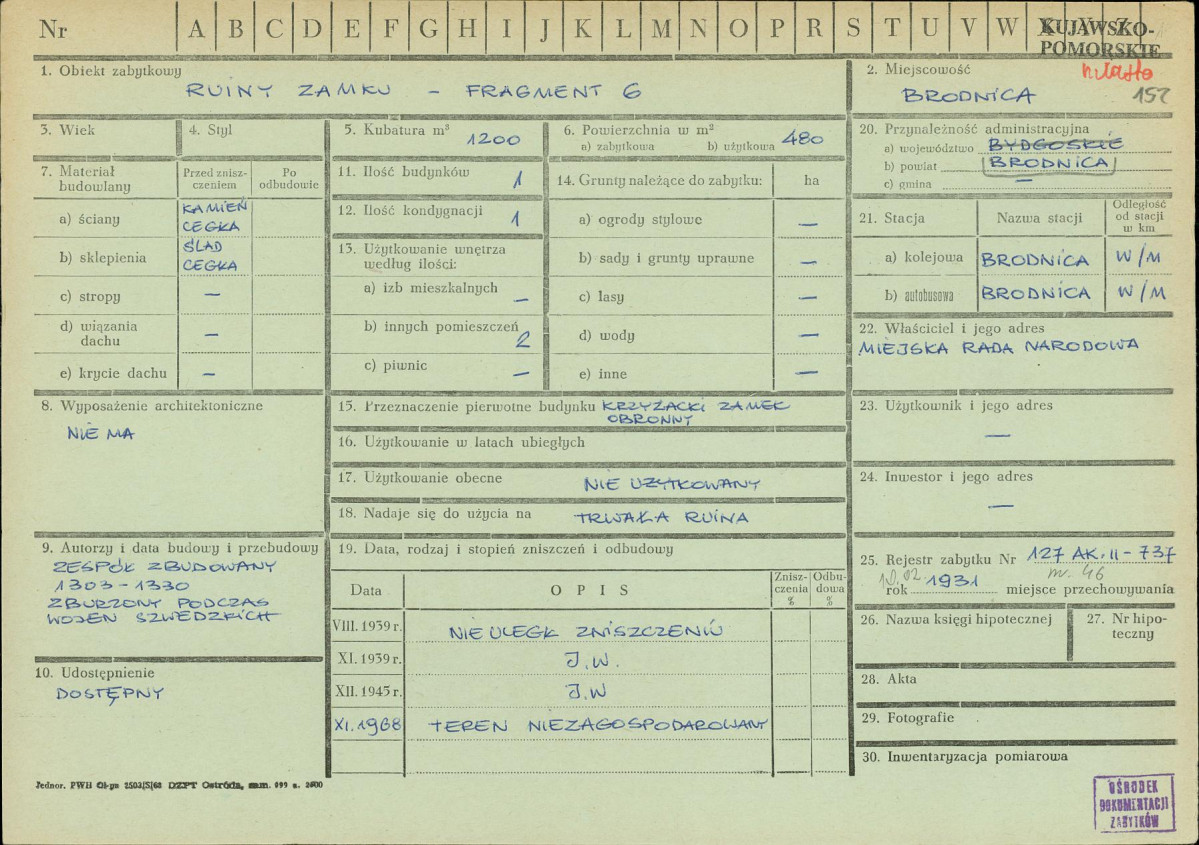 Nr A B C D E F G H I J K L M N O P R S T U V W X Y Z
KUJAWSKO-
POMORSKIE
miasto
152
1. Obiekt zabytkowy
RUINY ZAMKU – FRAGMENT 6
2. Miejscowość
BRODNICA
3. Wiek
4. Styl
5. Kubatura m³
1200
6. Powierzchnia w m²
a) zabytkowa b) użytkowa 480
7. Materiał
budowlany
Przed znisz-
czeniem
Po
odbudowie
a) ściany KAMIEŃ
CEGŁA
b) sklepienia ŚLAD
CEGŁA
c) stropy –
d) wiązania
dachu –
e) krycie dachu –
8. Wyposażenie architektoniczne
NIE MA
9. Autorzy i data budowy i przebudowy
ZESPÓŁ ZBUDOWANY
1303-1330
ZBURZONY PODCZAS
WOJEN SZWEDZKICH
10. Udostępnienie
DOSTĘPNY
11. Ilość budynków 1
12. Ilość kondygnacji 1
13. Użytkowanie wnętrza
według ilości:
a) izb mieszkalnych –
b) innych pomieszczeń 2
c) piwnic –
14. Grunty należące do zabytku: ha
a) ogrody stylowe –
b) sady i grunty uprawne –
c) lasy –
d) wody –
e) inne –
15. Przeznaczenie pierwotne budynku KRZYŻACKI ZAMEK
OBRONNY
16. Użytkowanie w latach ubiegłych
17. Użytkowanie obecne NIE UŻYTKOWANY
18. Nadaje się do użycia na TRWAŁA RUINA
19. Data, rodzaj i stopień zniszczeń i odbudowy
Data
O P I S
Znisz-
czenia
%
Odbu-
dowa
%
VIII. 1939 r. NIE ULEGŁ ZNISZCZENIU
XI. 1939 r. J.W.
XII. 1945 r. J.W
XI. 1968 TEREN NIEZAGOSPODAROWANY
20. Przynależność administracyjna
a) województwo BYDGOSKIE
b) powiat BRODNICA
c) gmina –
21. Stacja
Nazwa stacji
Odległość
od stacji
w km
a) kolejowa BRODNICA W/M
b) autobusowa BRODNICA W/M
22. Właściciel i jego adres
MIEJSKA RADA NARODOWA
23. Użytkownik i jego adres
–
24. Inwestor i jego adres
–
25. Rejestr zabytku Nr 127 AK.II-737
nr. 46
10.02
rok 1931 miejsce przechowywania
26. Nazwa księgi hipotecznej
27. Nr hipo-
teczny
28. Akta
29. Fotografie
30. Inwentaryzacja pomiarowa
Jednor. PWH Ol-pn 2502/S/68 DZPT Ostróda, zam. 099 n. 2000
OŚRODEK
DOKUMENTACJI
ZABYTKÓW